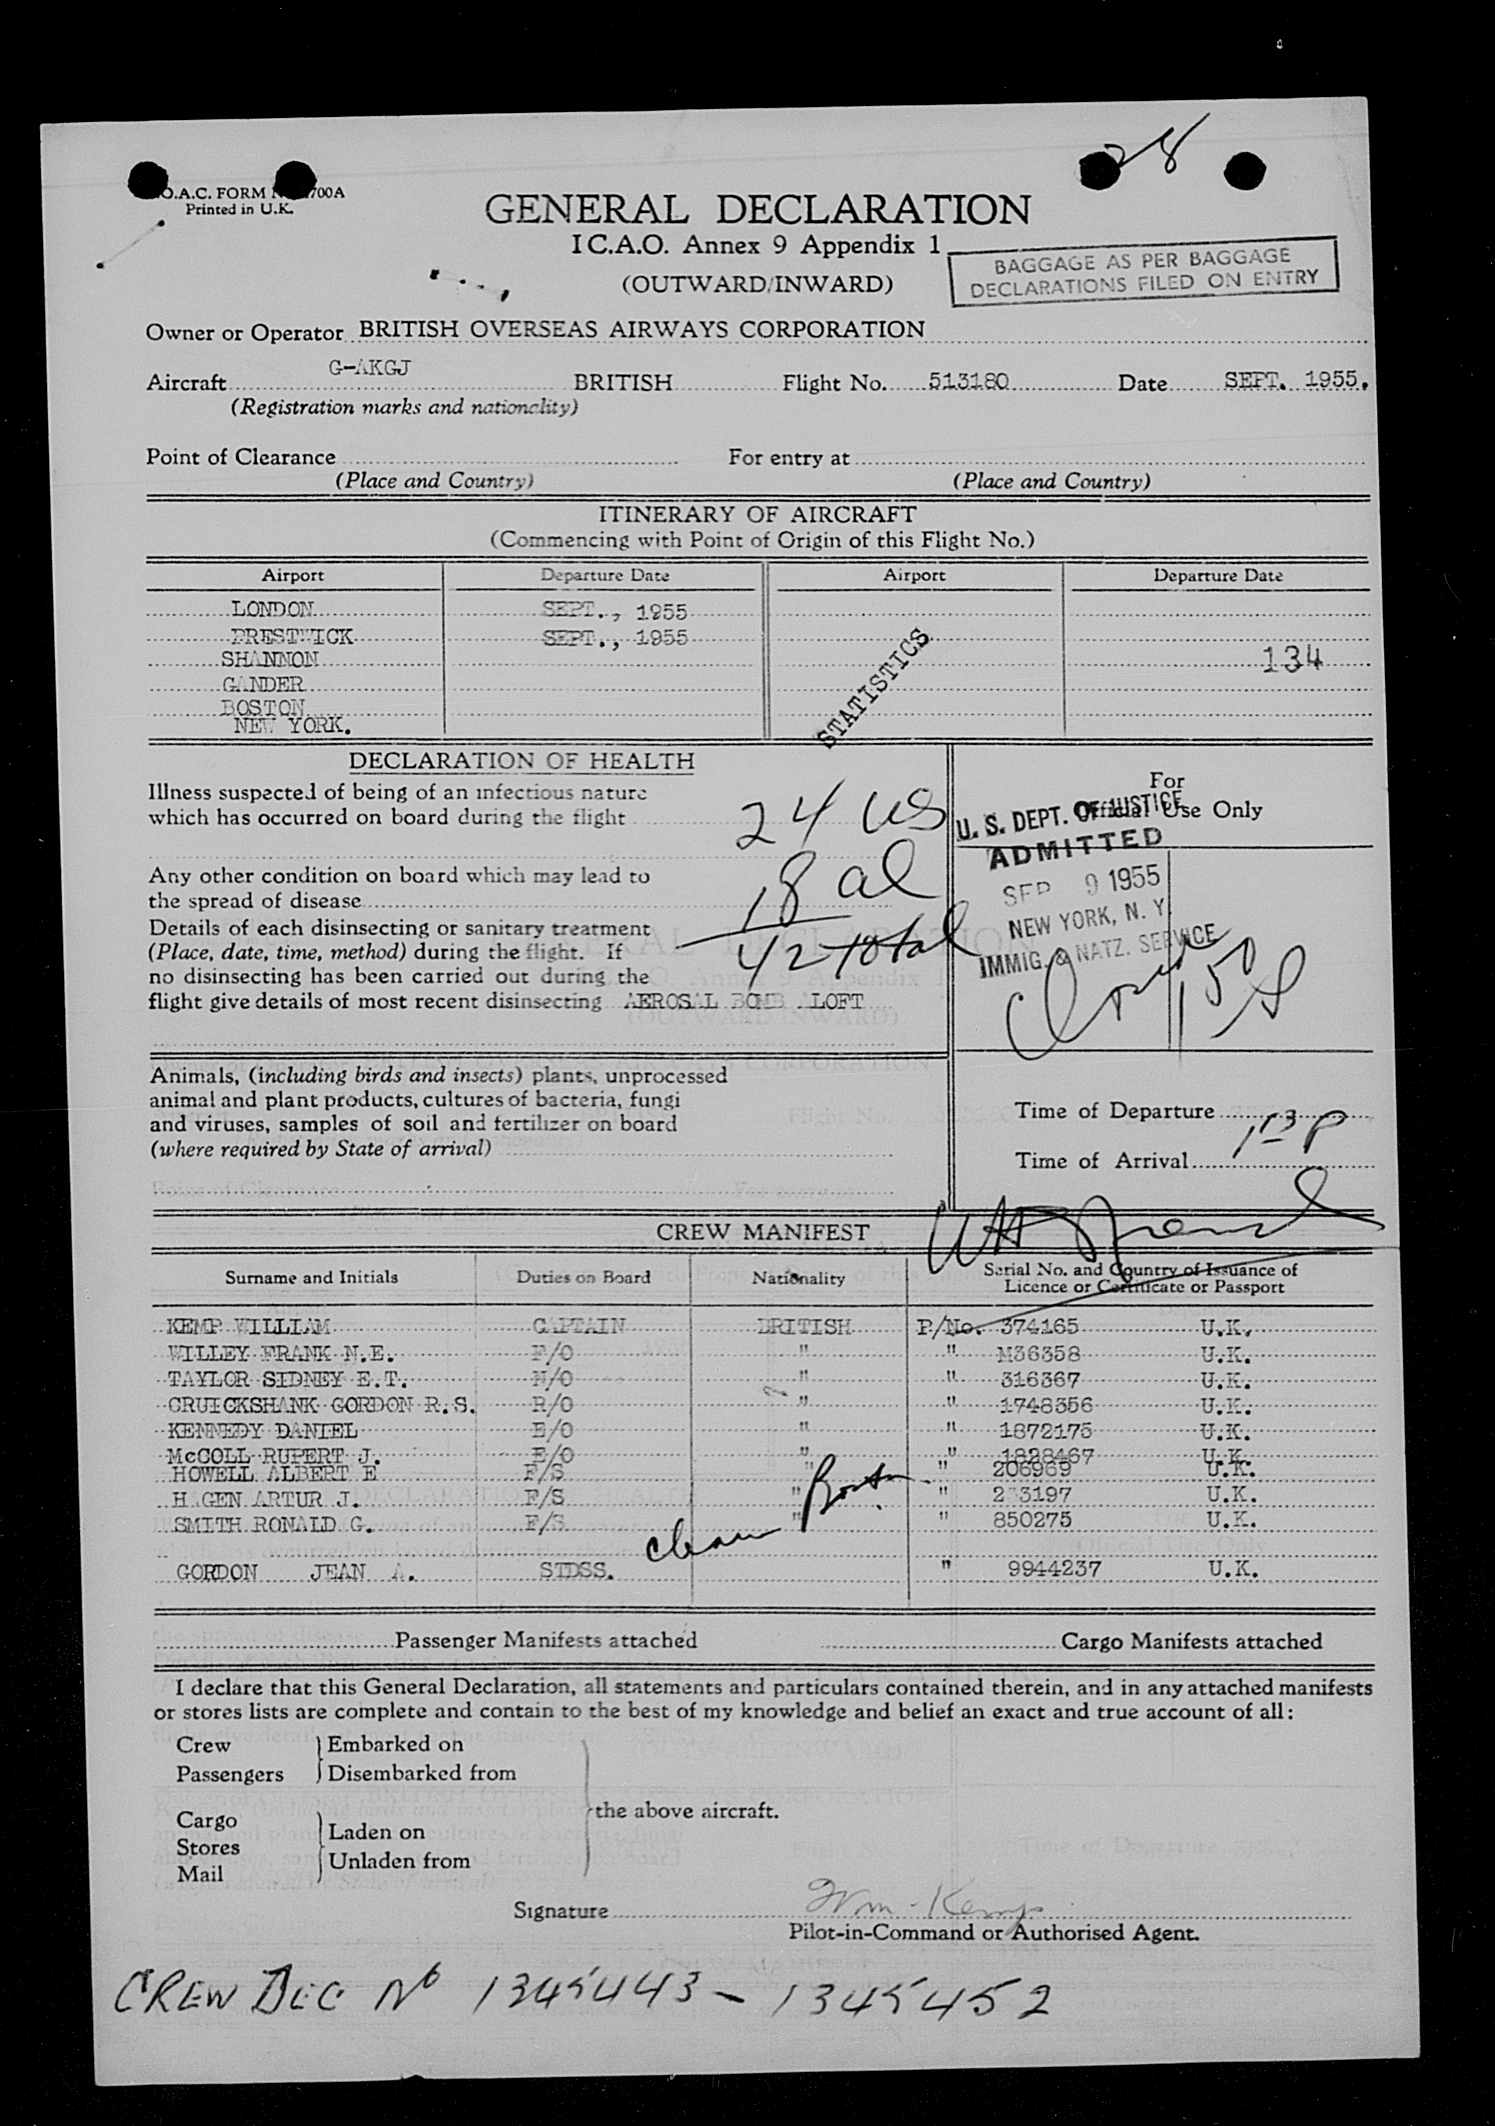 28
O.A.C. FORM 700A
Printed in U.K.
GENERAL DECLARATION
I C.A.O. Annex 9 Appendix 1
(OUTWARD/INWARD)
BAGGAGE AS PER BAGGAGE
DECLARATIONS FILED ON ENTRY
Owner or Operator BRITISH OVERSEAS AIRWAYS CORPORATION
Aircraft G-AKGJ BRITISH Flight No. 513180 Date SEPT. 1955.
(Registration marks and nationality)
Point of Clearance For entry at
(Place and Country) (Place and Country)
ITINERARY OF AIRCRAFT
(Commencing with Point of Origin of this Flight No.)
Airport Departure Date Airport Departure Date
LONDON SEPT., 1955
PRESTWICK SEPT., 1955
SHANNON 134
GANDER
BOSTON
NEW YORK.
STATISTICS
DECLARATION OF HEALTH
Illness suspected of being of an infectious nature
which has occurred on board during the flight
24 US
Any other condition on board which may lead to
the spread of disease
18 al
Details of each disinsecting or sanitary treatment
(Place, date, time, method) during the flight. If
42 total
no disinsecting has been carried out during the
flight give details of most recent disinsecting AEROSAL BOMB ALOFT
For
Official Use Only
U. S. DEPT. OF JUSTICE
ADMITTED
SEP 9 1955
NEW YORK, N. Y.
IMMIG. & NATZ. SERVICE
Animals, (including birds and insects) plants, unprocessed
animal and plant products, cultures of bacteria, fungi
and viruses, samples of soil and fertilizer on board
(where required by State of arrival)
Time of Departure
Time of Arrival
CREW MANIFEST
Surname and Initials Duties on Board Nationality Serial No. and Country of Issuance of
Licence or Certificate or Passport
KEMP WILLIAM CAPTAIN BRITISH P/No. 374165 U.K.
WILLEY FRANK N.E. F/O " " M36358 U.K.
TAYLOR SIDNEY E.T. N/O " " 316367 U.K.
CRUICKSHANK GORDON R.S. R/O " " 1748356 U.K.
KENNEDY DANIEL E/O " " 1872175 U.K.
McCOLL RUPERT J. E/O " " 1828467 U.K.
HOWELL ALBERT E F/S " " 206969 U.K.
HAGEN ARTUR J. F/S " " 2 3197 U.K.
SMITH RONALD G. F/S " " 850275 U.K.
clean Boston
GORDON JEAN A. STDSS. " 9944237 U.K.
Passenger Manifests attached Cargo Manifests attached
I declare that this General Declaration, all statements and particulars contained therein, and in any attached manifests
or stores lists are complete and contain to the best of my knowledge and belief an exact and true account of all:
Crew Embarked on
Passengers Disembarked from
the above aircraft.
Cargo
Laden on
Stores
Unladen from
Mail
Signature Wm. Kemp
Pilot-in-Command or Authorised Agent.
CREW DEC No 1345443 - 1345452